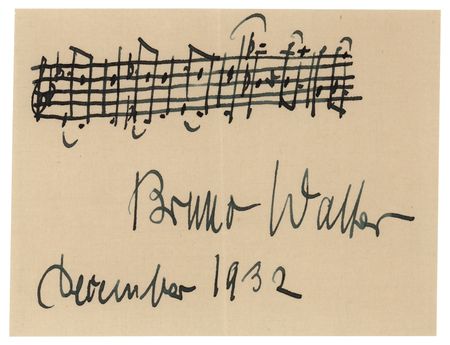 Bruno Walter
December 1932